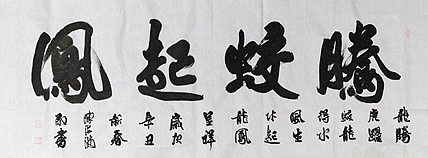 騰蛟起鳳
龍騰
虎躍
蛟龍
得水
風生
水起
龍鳳
呈祥
歲次
辛丑
新春
書